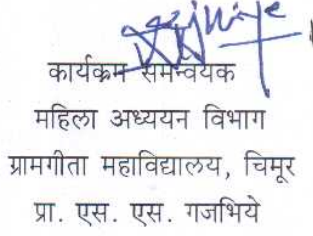 कार्यक्रम समन्वयक
महिला अध्ययन विभाग
ग्रामगीता महाविद्यालय, चिमूर
प्रा. एस. एस. गजभिये